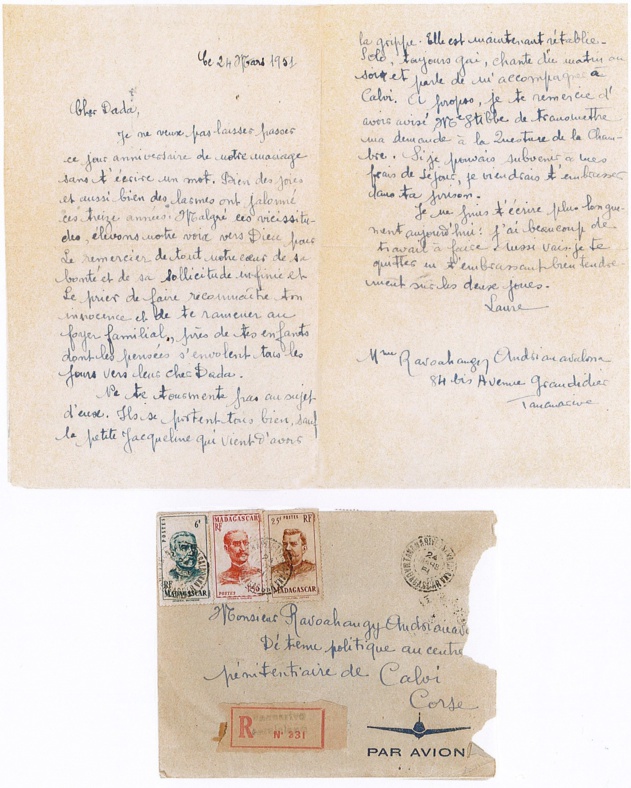 Le 24 Mars 1951
Cher Dada,
Je ne veux pas laisser passer
ce jour anniversaire de notre mariage
sans t'écrire un mot. Bien des joies
et aussi bien des larmes ont jalonné
ces treize années. Malgré ces vicissitu-
des, élevons notre voix vers Dieu pour
Le remercier de tout notre cœur de sa
bonté et de sa sollicitude infinie et
Le prier de faire reconnaître ton
innocence et de te ramener au
foyer familial, près de tes enfants
dont les pensées s'envolent tous les
jours vers leur cher Dada.
Ne te tourmente pas au sujet
d'eux. Ils se portent tous bien, sauf
la petite Jacqueline qui vient d'avoir
la grippe. Elle est maintenant rétablie.
Solo, toujours gai, chante du matin au
soir et parle de m'accompagner à
Calvi. A propos, je te remercie d'
avoir avisé Me Stibbe de transmettre
ma demande à la Questure de la Cham-
bre. Si je pouvais subvenir à mes
frais de séjour, je viendrais t'embrasser
dans ta prison.
Je ne puis t'écrire plus longue-
ment aujourd'hui : j'ai beaucoup de
travail à faire. Aussi vais-je te
quitter en t'embrassant bien tendre
ment sur les deux joues.
Laure
Mme Ravoahangy Andrianavalona
84 bis Avenue Grandidier
Tananarive
POSTES 6F
RF
MADAGASCAR
MADAGASCAR
RF
POSTES
25F POSTES RF
MADAGASCAR
24
Monsieur Ravoahangy Andrianav
Détenu politique au centre
pénitentiaire de Calvi
Corse
R
N° 331
PAR AVION